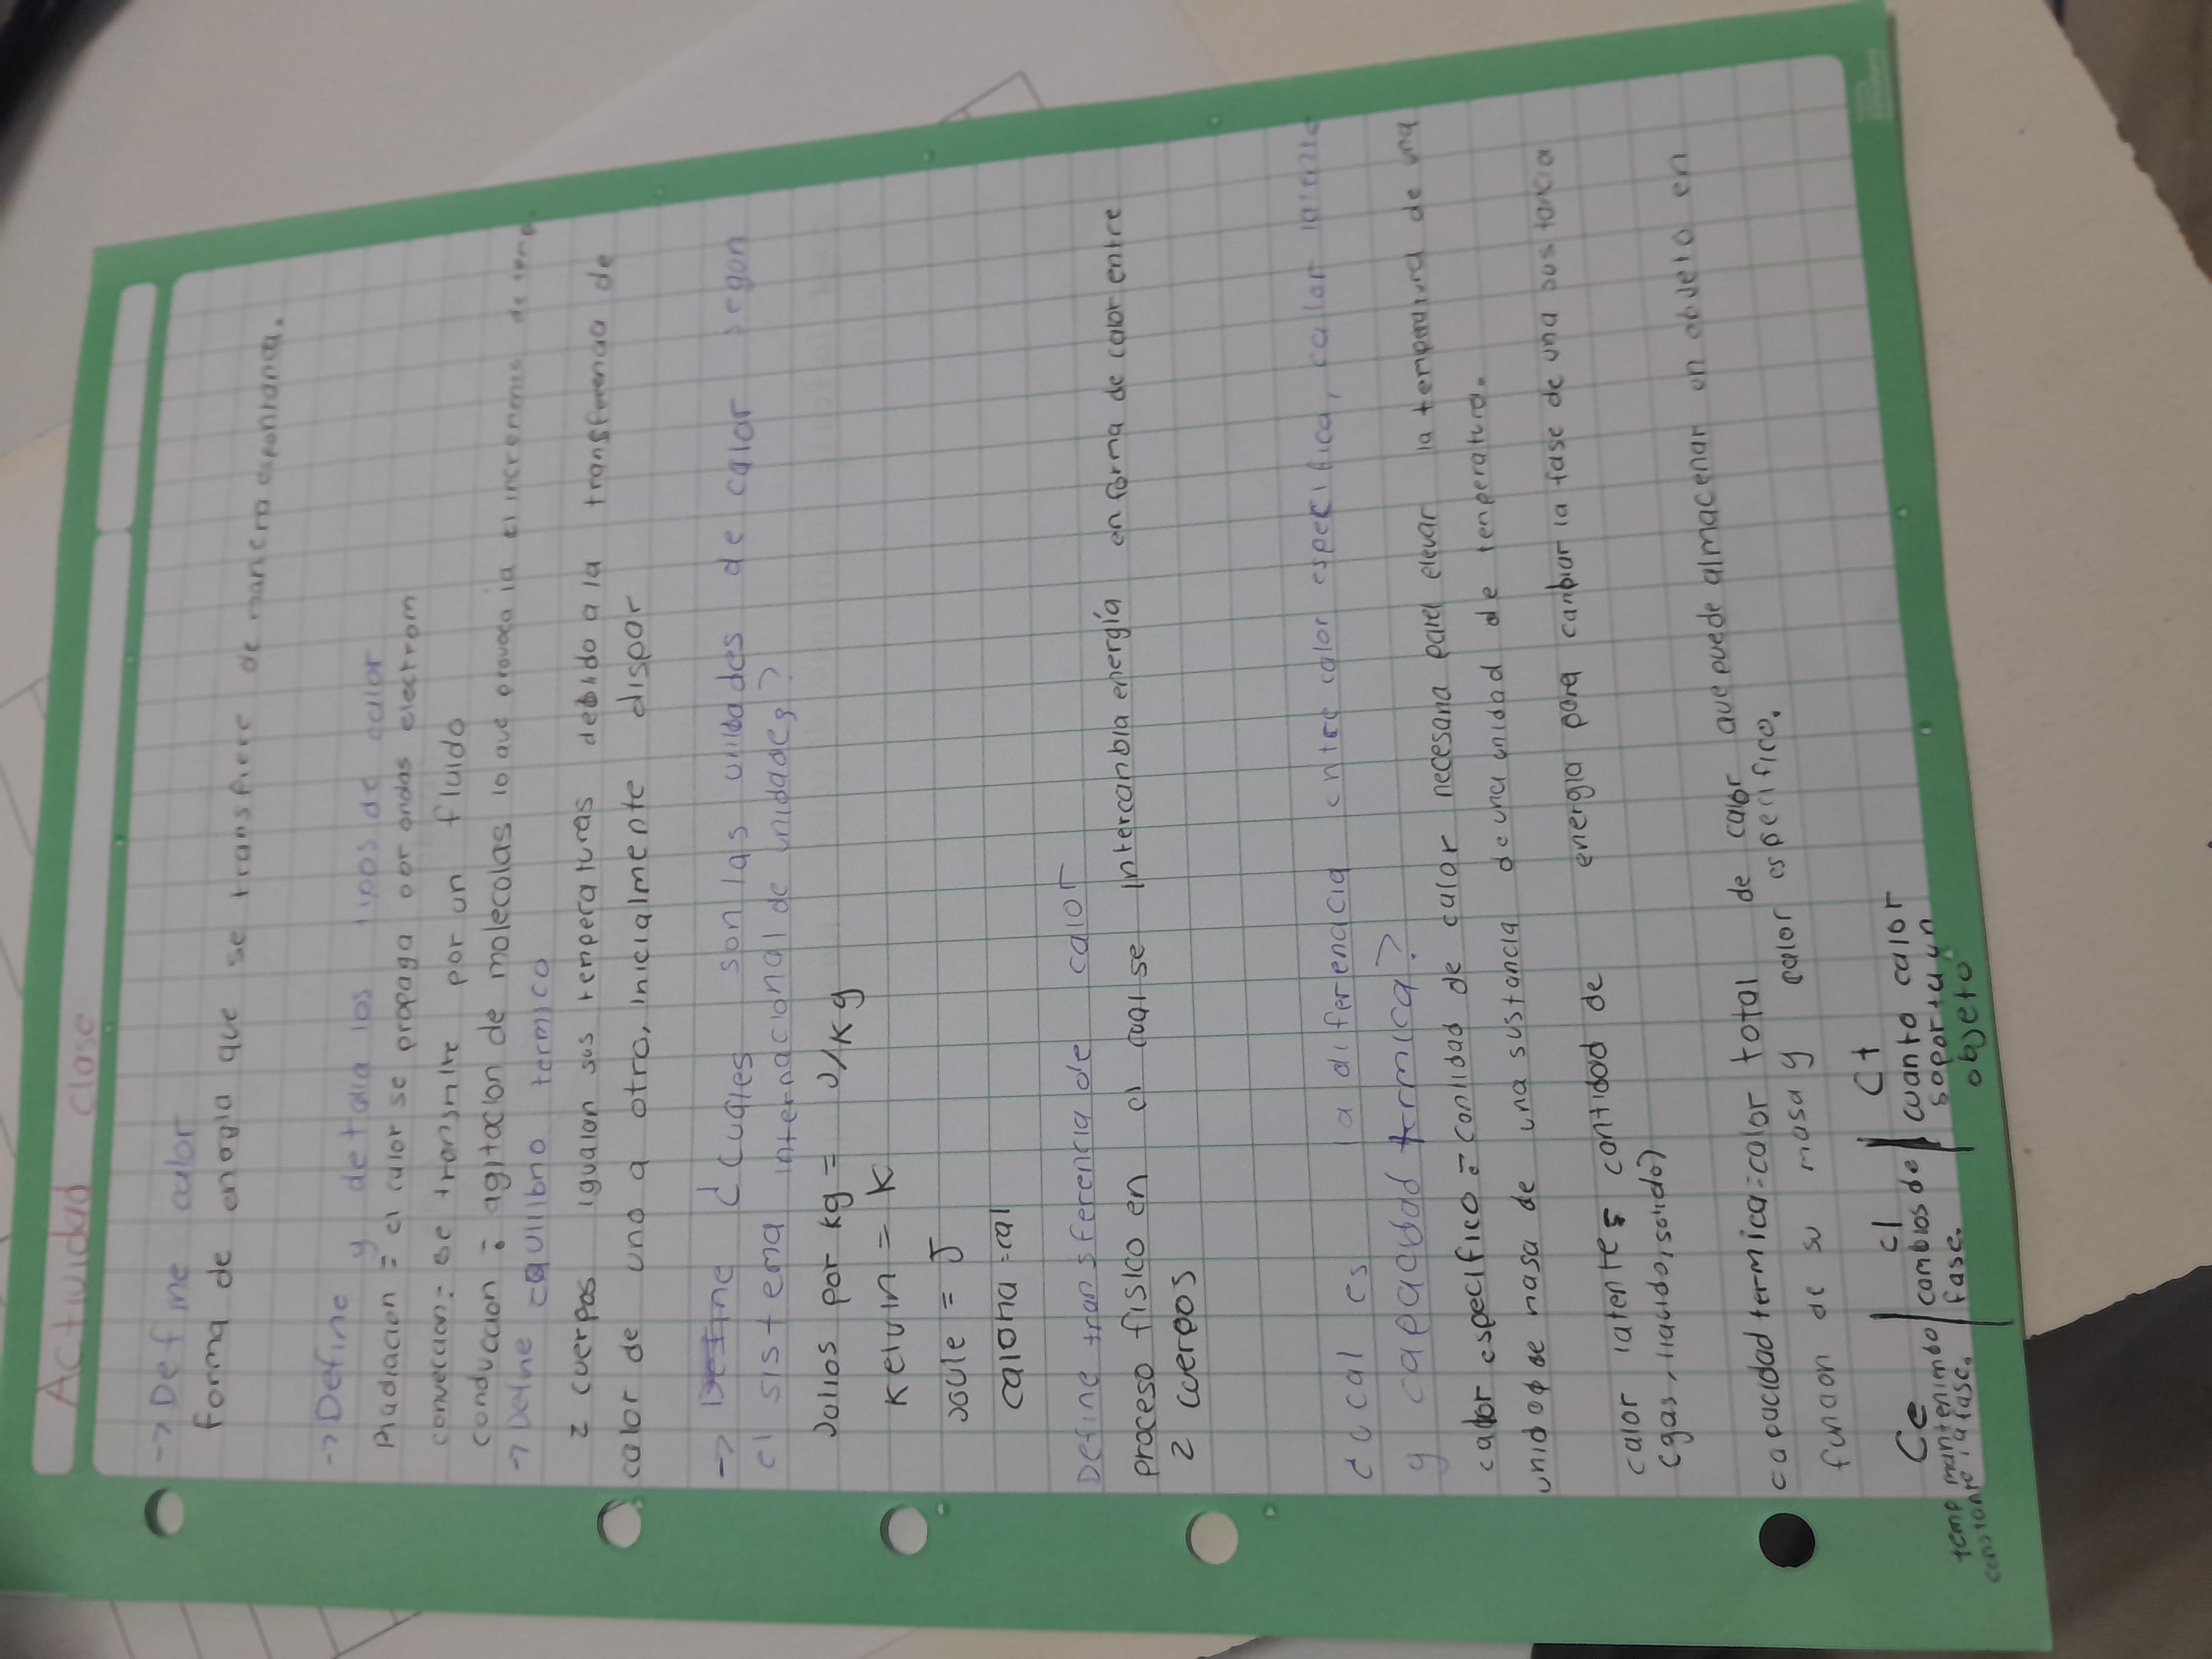 Actividad clase
→ Define calor
forma de energia que se transfiere de manera espontanea.
→ Define y detalla los tipos de calor
Radiacion = el calor se propaga por ondas electrom
conveccion: se transmite por un fluido
conduccion = agitacion de molecolas lo que provoca la el incremento de temp
→ Define equilibrio termico
2 cuerpos igualan sus temperaturas debido a la transferencia de
calor de uno a otro, inicialmente dispar
→ Define ¿Cuales son las unidades de calor segun
el sistema internacional de unidades?
Jolios por kg = J/Kg
Kelvin = K
Joule = J
caloria = cal
Define transferencia de calor
proceso fisico en el cual se intercanbia energía en forma de calor entre
2 cuerpos
¿cual es la diferencia entre calor especifico, calor latente
y capacidad termica?
calor especifico = cantidad de calor necesaria para elevar la temperatura de una
unidad de masa de una sustancia de una unidad de temperatura.
calor latente = cantidad de energia para canbiar la fase de una sustancia
(gas, liquido, solido)
capacidad termica = calor total de calor que puede almacenar un objeto en
funcion de su masa y calor especifico.
Ce cl Ct
temp mantenimbo cambios de cuanto calor
constante la fase. fase. soporta un
objeto